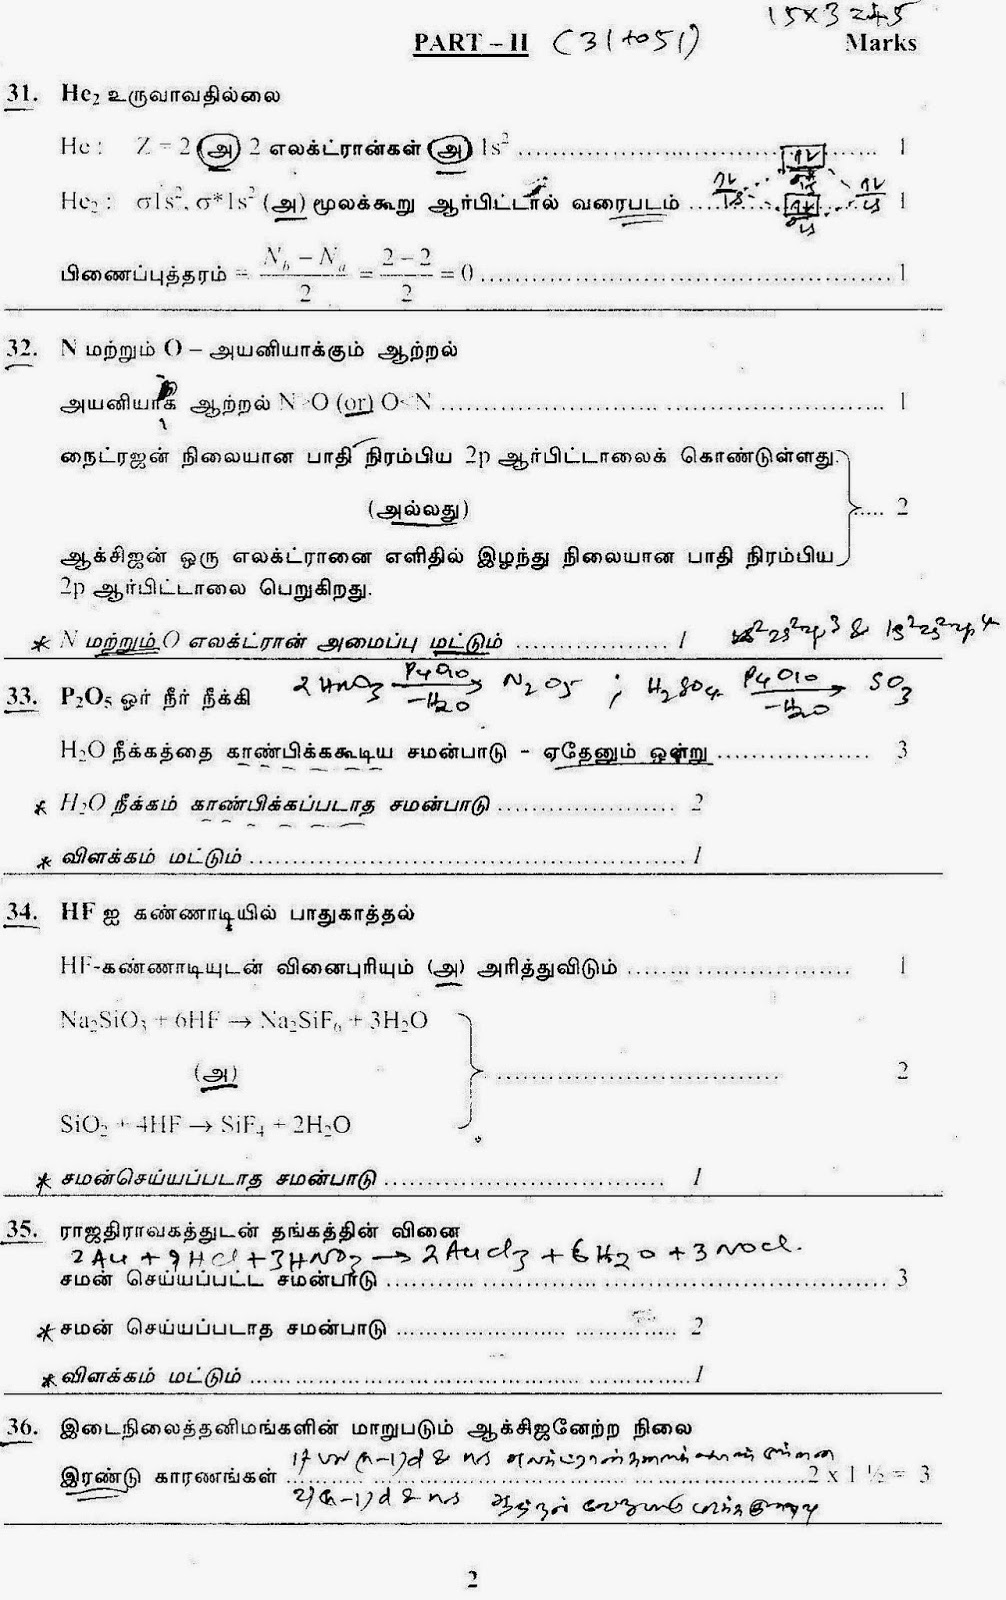 15 x 3 = 45
PART – II (31 to 51) Marks
31. He2 உருவாவதில்லை
He : Z = 2 (அ) 2 எலக்ட்ரான்கள் (அ) 1s² ........................................ 1
He2 : σ1s², σ*1s² (அ) மூலக்கூறு ஆர்பிட்டால் வரைபடம் ............ 1
பிணைப்புத்தரம் = (Nb – Na)/2 = (2 – 2)/2 = 0 ............................................ 1
32. N மற்றும் O – அயனியாக்கும் ஆற்றல்
அயனியாக் ஆற்றல் N >O (or) O< N ............................................ 1
நைட்ரஜன் நிலையான பாதி நிரம்பிய 2p ஆர்பிட்டாலைக் கொண்டுள்ளது.
(அல்லது) ..... 2
ஆக்சிஜன் ஒரு எலக்ட்ரானை எளிதில் இழந்து நிலையான பாதி நிரம்பிய
2p ஆர்பிட்டாலை பெறுகிறது.
* N மற்றும் O எலக்ட்ரான் அமைப்பு மட்டும் .................. 1 1s²2s²2p³ & 1s²2s²2p⁴
33. P2O5 ஓர் நீர் நீக்கி 2HNO3 P4O10 → –H2O N2O5 ; H2SO4 P4O10 → –H2O SO3
H2O நீக்கத்தை காண்பிக்ககூடிய சமன்பாடு - ஏதேனும் ஒன்று .................. 3
* H2O நீக்கம் காண்பிக்கப்படாத சமன்பாடு ..................... 2
* விளக்கம் மட்டும் .................................................... 1
34. HF ஐ கண்ணாடியில் பாதுகாத்தல்
HF-கண்ணாடியுடன் வினைபுரியும் (அ) அரித்துவிடும் ........ .................. 1
Na2SiO3 + 6HF → Na2SiF6 + 3H2O
(அ) ................................. 2
SiO2 + 4HF → SiF4 + 2H2O
* சமன்செய்யப்படாத சமன்பாடு ................................. 1
35. ராஜதிராவகத்துடன் தங்கத்தின் வினை
2Au + 9HCl + 3HNO3 → 2AuCl3 + 6H2O + 3NOCl.
சமன் செய்யப்பட்ட சமன்பாடு ............................................................ 3
* சமன் செய்யப்படாத சமன்பாடு .................................. 2
* விளக்கம் மட்டும் .................................................... 1
36. இடைநிலைத்தனிமங்களின் மாறுபடும் ஆக்சிஜனேற்ற நிலை
(n-1)d & ns
இரண்டு காரணங்கள் ............................................................ 2 x 1 ½ = 3
2) (n-1)d & ns
2